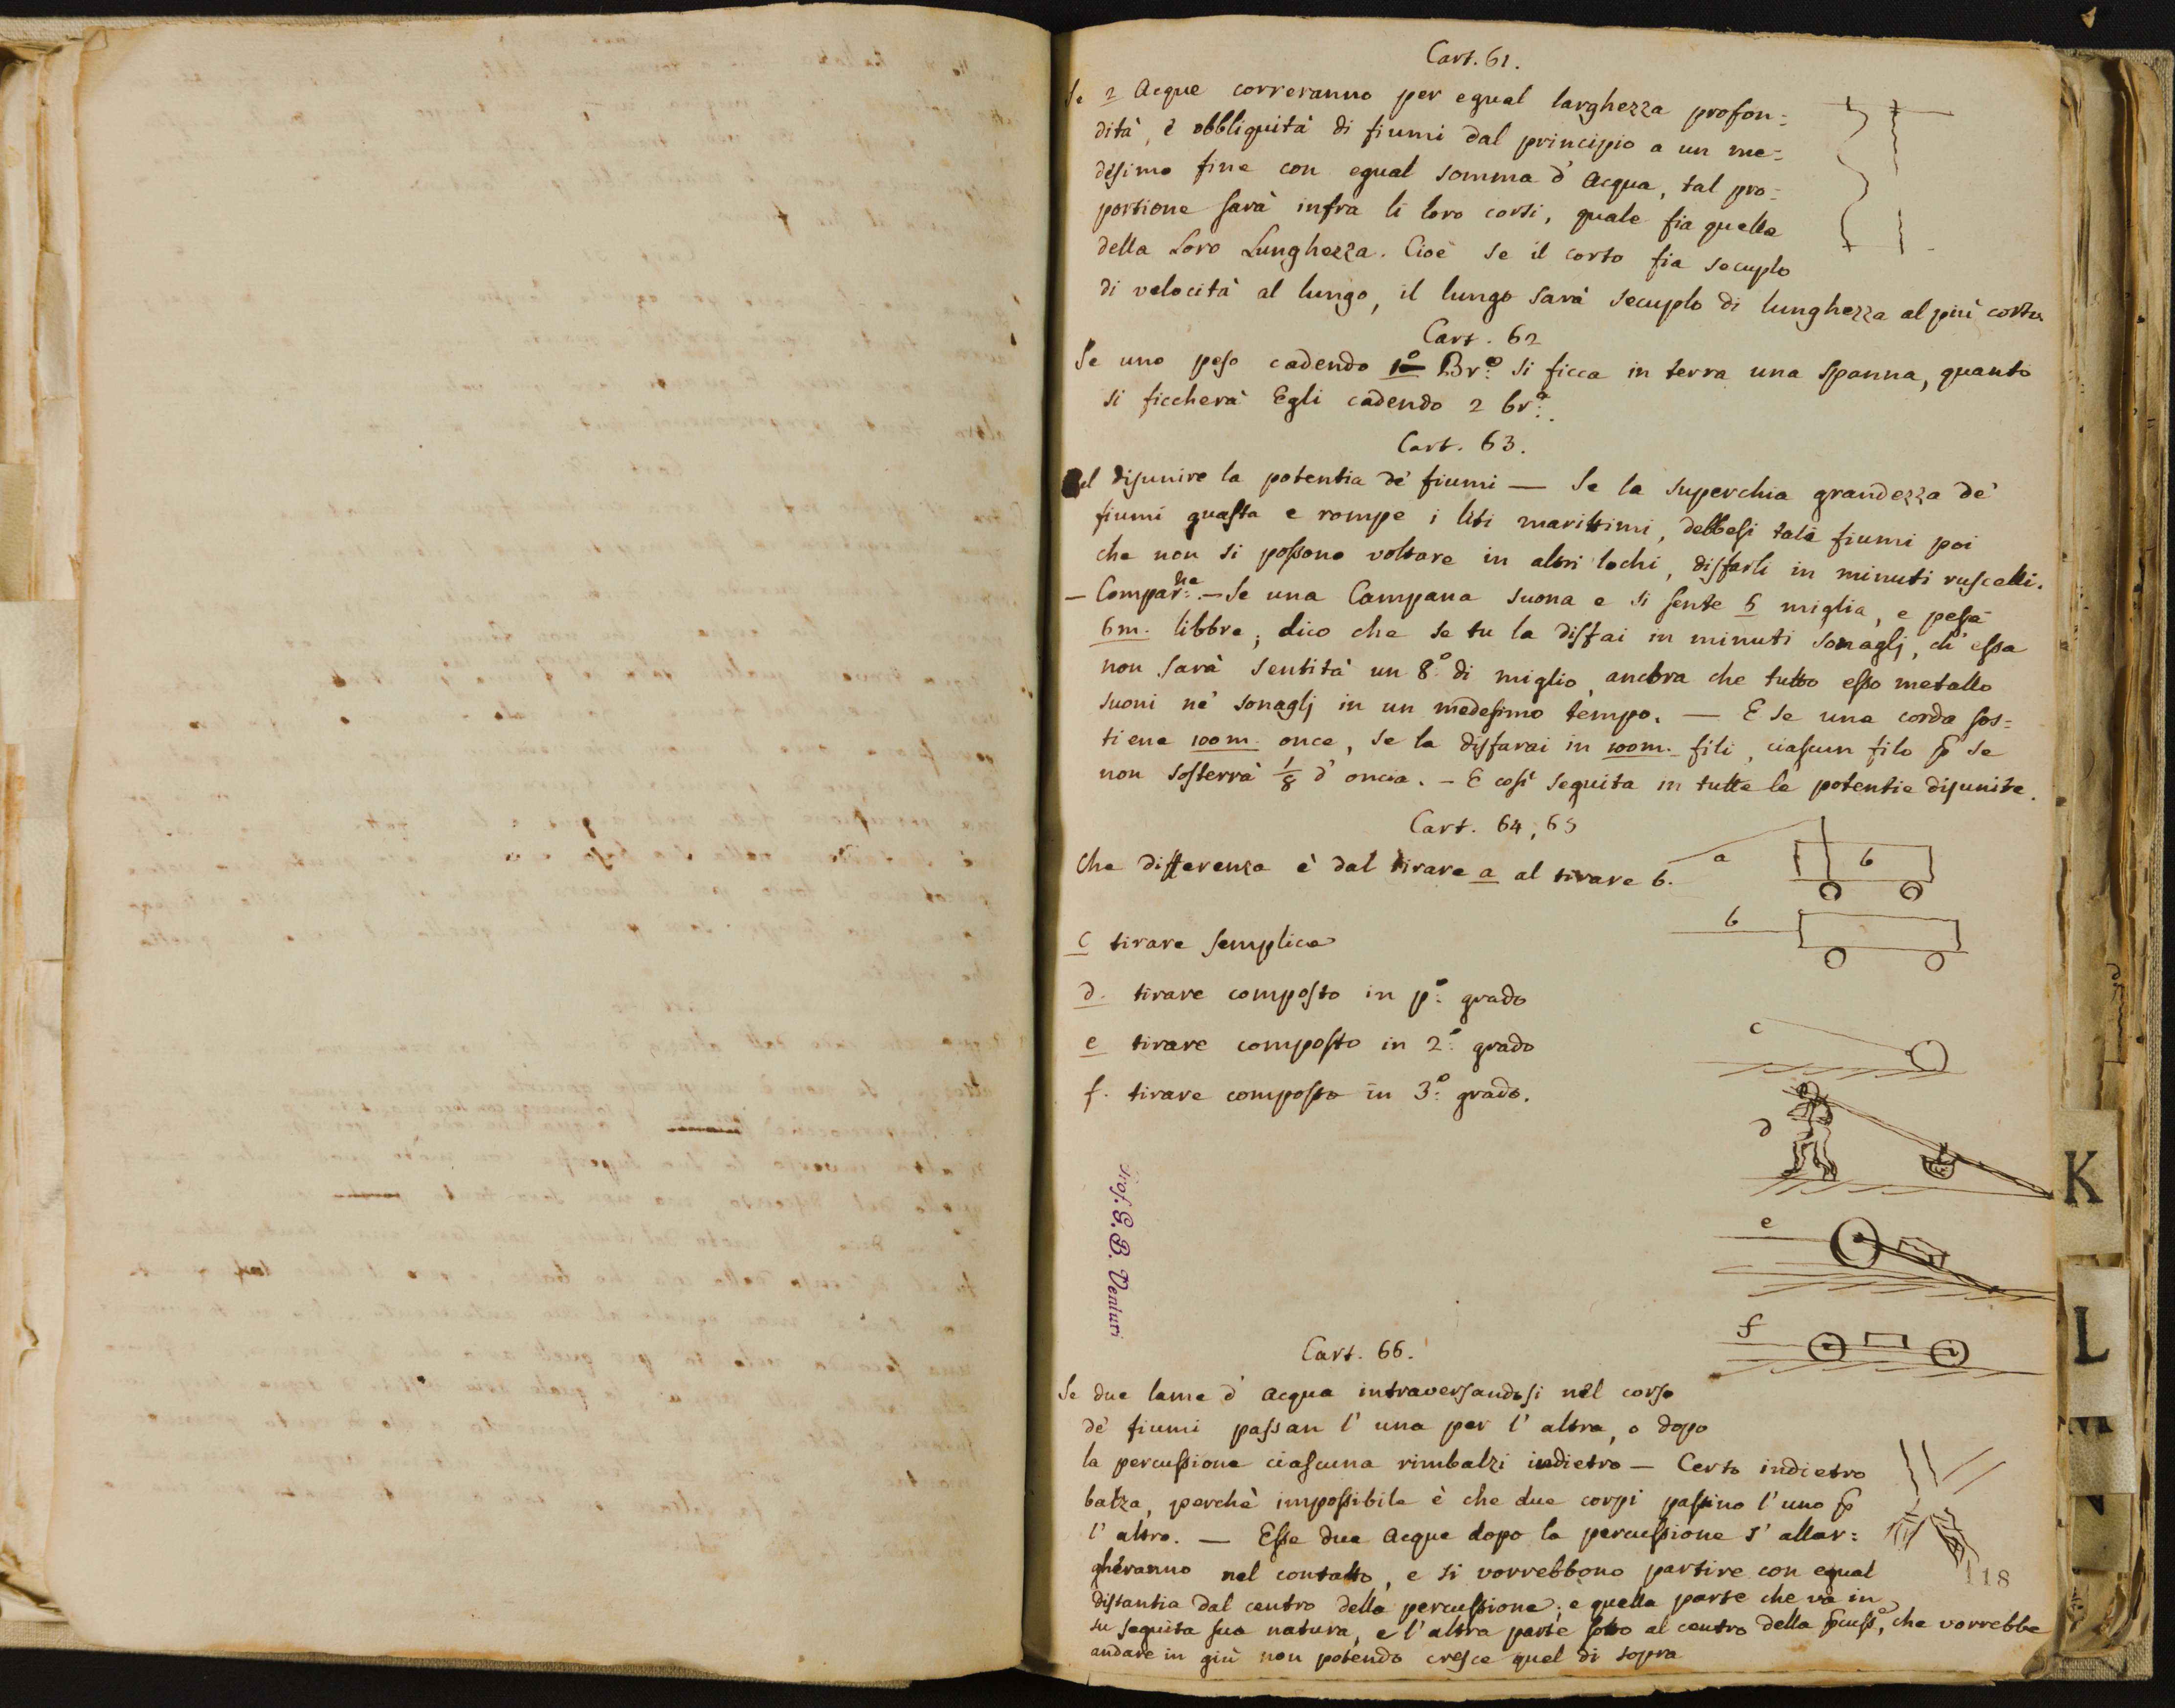 Cart. 61.
Se 2 Acque correranno per egual larghezza profon=
dità, e obbliquità di fiumi dal principio a un me=
desimo fine con egual somma d' Acqua, tal pro=
portione sarà infra li loro corsi, quale fia quella
della Loro Lunghezza. Cioè se il corto fia secuplo
di velocità al lungo, il lungo sarà secuplo di lunghezza al più corto.
Cart. 62
Se uno peso cadendo 1º Brº: si ficca in terra una spanna, quanto
si ficcherà Egli cadendo 2 brª:.
Cart. 63.
Del disunire la potentia de' fiumi — Se la superchia grandezza de'
fiumi guasta e rompe i liti marittimi, debbesi tali fiumi poi
che non si possono voltare in altri lochi, disfarli in minuti ruscelli.
— Comparne: — Se una Campana suona e si sente 6 miglia, e pesa
6m. libbre, dico che se tu la disfai in minuti sonaglj, ch' essa
non sarà sentità un 8º di miglio, ancora che tutto esso metallo
suoni ne' sonaglj in un medesimo tempo. — E se una corda sos=
tiene 100m. once, se la disfarai in 100m. fili, ciascun filo p se
non sosterrà 1/8 d' oncia. — E così seguita in tutte le potentie disunite.
Cart. 64, 65
Che differenza è dal tirare a al tirare b.
a
b
b
c tirare semplice
d. tirare composto in pº: grado
e tirare composto in 2º: grado
f. tirare composto in 3º: grado.
c
d
e
f
Prof. G. B. Venturi
Cart. 66.
Se due lame d' Acqua intraversandosi nel corso
de' fiumi passan l' una per l' altra, o dopo
la percussione ciascuna rimbalzi indietro — Certo indietro
balza, perchè impossibile è che due corpi passino l' uno p
l' altro. — Esse due Acque dopo la percussione s' allar=
gheranno nel contatto, e si vorrebbono partire con equal
distantia dal centro della percussione; e quella parte che va in
su seguita sua natura, e l' altra parte sotto al centro della pcusse, che vorrebbe
andare in giù non potendo cresce quel di sopra
118
K
L
M
N